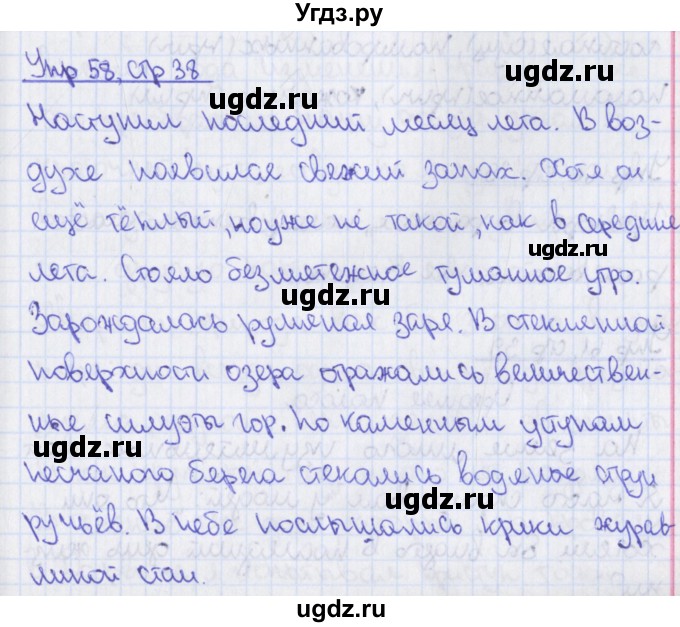 Угдз.ру
Упр 58, стр 38
ugdz.ru ugdz.ru
Наступил последний месяц лета. В воз-
духе появился свежий запах. Хотя он
ugdz.ru
ещё тёплый, но уже не такой, как в середине
ugdz.ru
лета. Стояло безмятежное туманное утро.
ugdz.ru
Зарождалась румяная заря. В стеклянной
ugdz.ru
поверхности озера отражались величествен-
ные силуэты гор. По каменным уступам
ugdz.ru
песчаного берега стекались водяные струи
ugdz.ru
ручьёв. В небе послышались крики журав-
ugdz.ru
линой стаи.
ugdz.ru